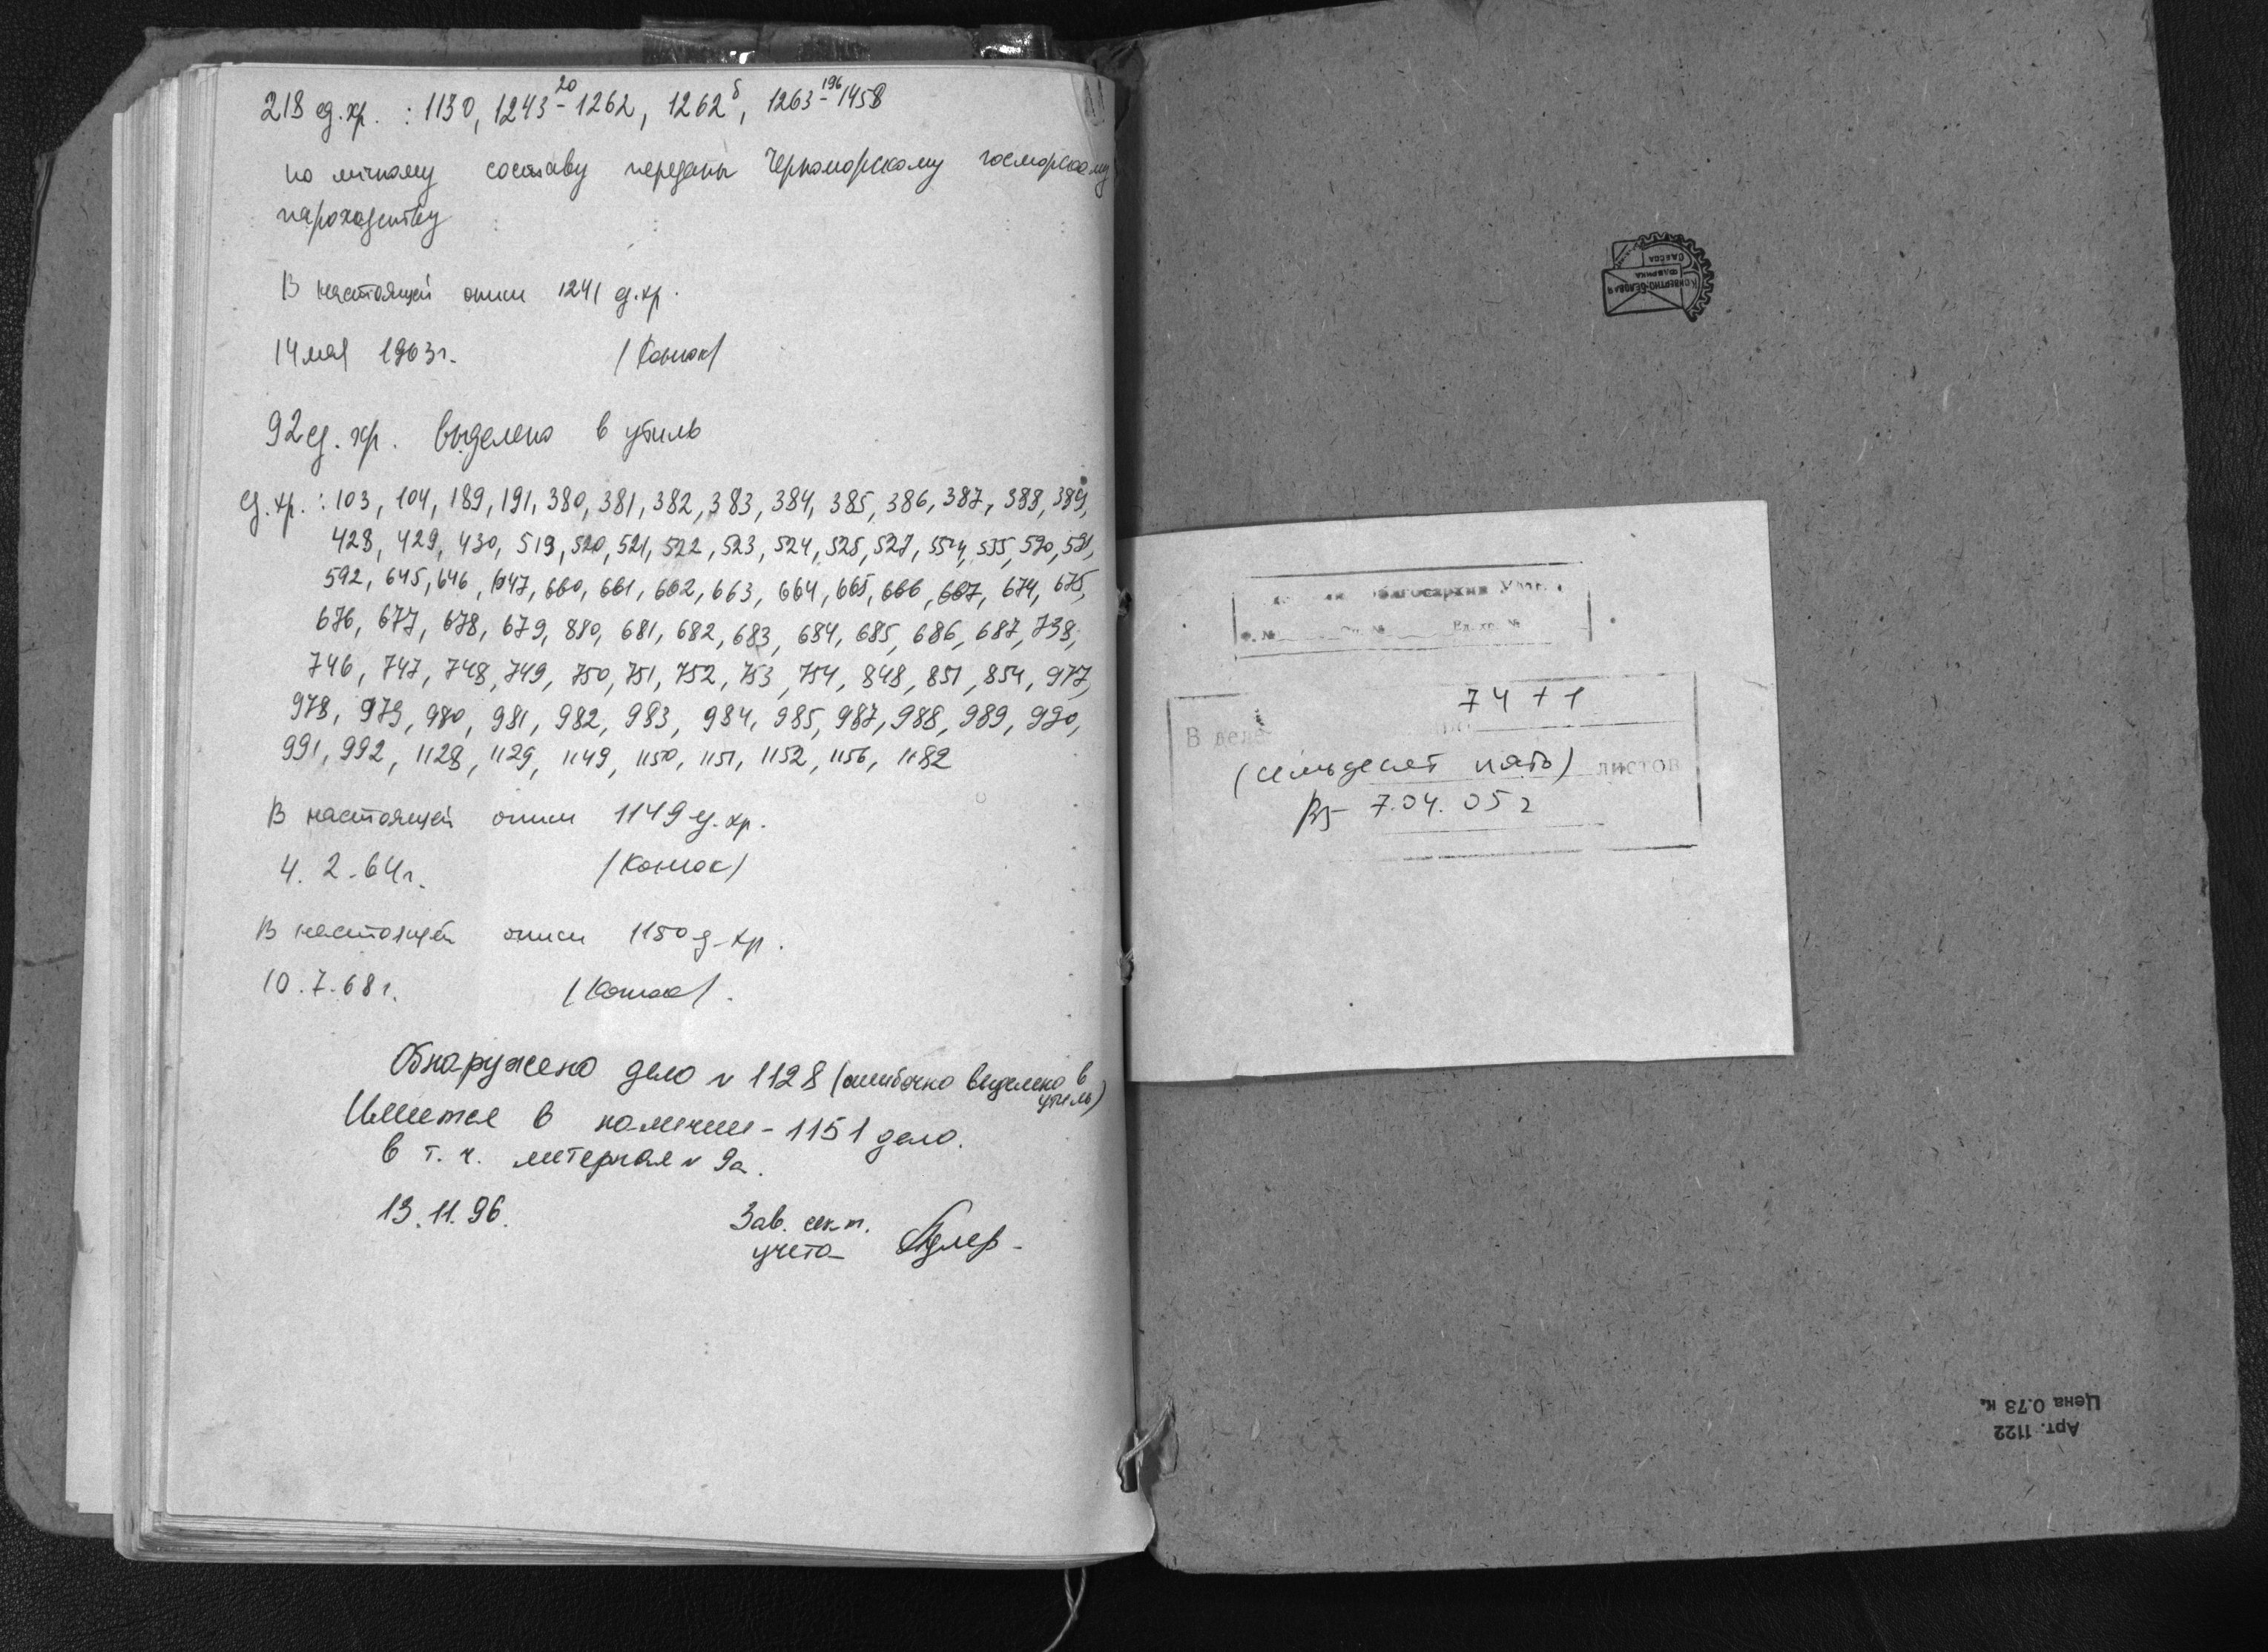 218 ед. хр. : 1130, 1243 -20 1262, 1262б, 1263 -196 1458
по личному составу переданы Черноморскому госморскому
пароходству
В настоящей описи 1241 ед. хр.
14 мая 1963 г.
92 ед. хр. выделено в утиль
ед. хр. : 103, 104, 189, 191, 380, 381, 382, 383, 384, 385, 386, 387, 388, 389,
428, 429, 430, 519, 520, 521, 522, 523, 524, 525, 527, 554, 555, 590, 591,
592, 645, 646, 647, 660, 661, 662, 663, 664, 665, 666, 667, 674, 675,
676, 677, 678, 679, 880, 681, 682, 683, 684, 685, 686, 687, 738,
746, 747, 748, 749, 750, 751, 752, 753, 754, 848, 851, 854, 977,
978, 979, 980, 981, 982, 983, 984, 985, 987, 988, 989, 990,
991, 992, 1128, 1129, 1149, 1150, 1151, 1152, 1156, 1182
В настоящей описи 1149 ед. хр.
4. 2. 64 г.
В настоящей описи 1150 ед. хр.
10. 7. 68 г.
Обнаружено дело № 1128 (ошибочно выделено в
утиль)
Имеется в наличии - 1151 дело.
в т. ч. литерное № 9а.
13. 11. 96.
Зав. сект.
учета
Конвертно-беловая
фабрика
Одесса
Ф. № Оп. № Ед. хр. №
74 + 1
В деле
(семьдесят пять) листов
7. 04. 05 г
Арт. 1122
Цена 0.73 к.